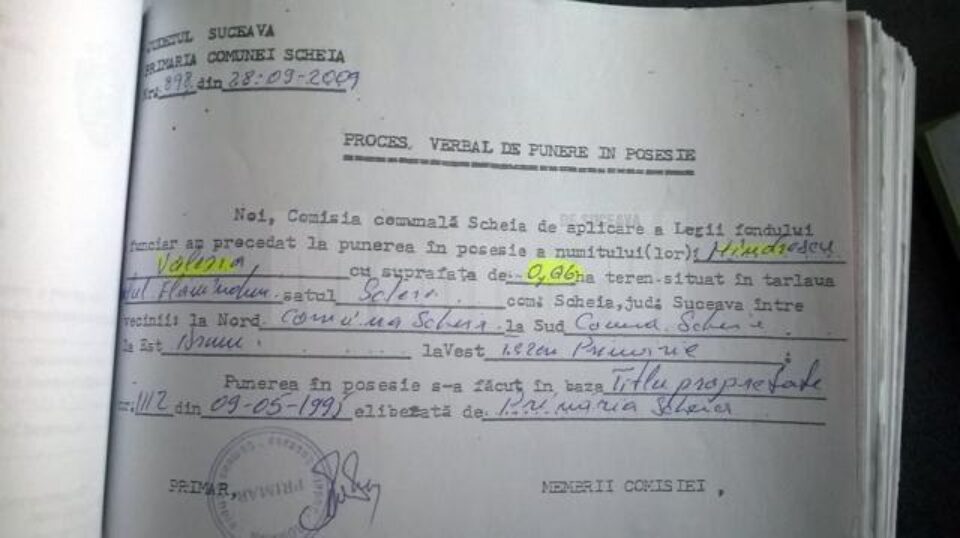 JUDETUL SUCEAVA
PRIMARIA COMUNEI SCHEIA
Nr. 898 din 28-09-2009
PROCES. VERBAL DE PUNERE IN POSESIE
DE SUCEAVA
Noi, Comisia comunală Scheia de aplicare a Legii fondului
funciar am precedat la punerea în posesie a numitului(lor):
Valeria cu suprafata de 0,06 ha teren situat în tarlaua
satul Scheia com: Scheia, jud: Suceava între
vecinii: la Nord Comuna Scheia la Sud Comuna Scheia
la Est Drum la Vest Primărie ;
Punerea în posesie s-a făcut în baza Titlu proprietate
nr. 1112 din 09-05-199 eliberată de Primăria Scheia
PRIMAR, MEMBRII COMISIEI,
PRIMAR